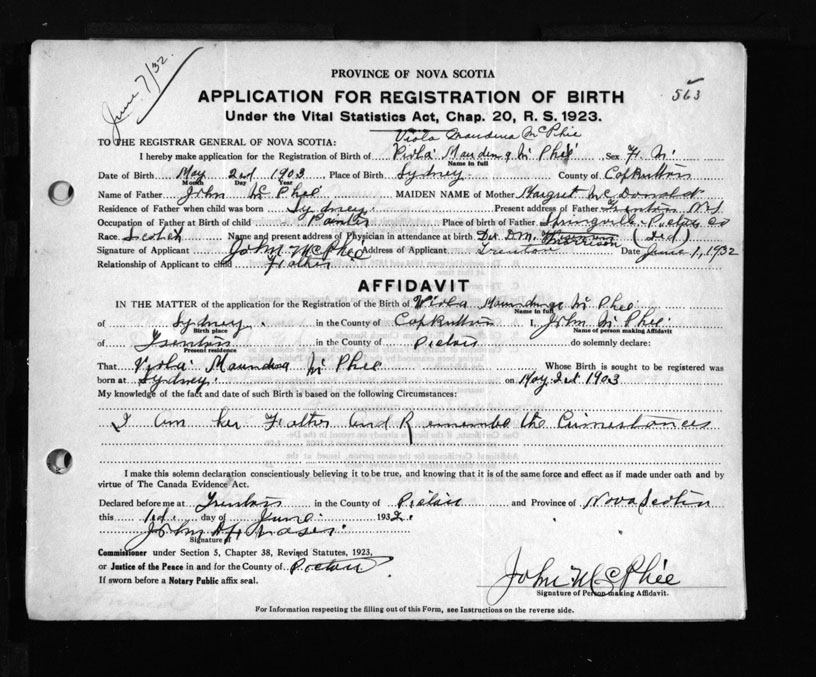 June 7/32.
563
PROVINCE OF NOVA SCOTIA
APPLICATION FOR REGISTRATION OF BIRTH
Under the Vital Statistics Act, Chap. 20, R. S. 1923.
TO THE REGISTRAR GENERAL OF NOVA SCOTIA:
Viola Maudena McPhie
I hereby make application for the Registration of Birth of Viola Mc Phee Sex
Name in full
Date of Birth May 2nd 1903 Place of Birth Sydney County of
Month Day Year
Name of Father John Mc Phee MAIDEN NAME of Mother Margret Mc Donald
Residence of Father when child was born Sydney Present address of Father Trenton N S
Occupation of Father at Birth of child Place of birth of Father Springville Pictou Co
Race Scotch Name and present address of Physician in attendance at birth
Signature of Applicant John McPhee Address of Applicant Trenton Date June 1, 1932
Relationship of Applicant to child Father
AFFIDAVIT
IN THE MATTER of the application for the Registration of the Birth of Viola Mc Phee
Name in full
of Sydney in the County of I, John Mc Phee
Birth place Name of person making Affidavit
of Trenton in the County of Pictou do solemnly declare:
Present residence
That Viola Mc Phee Whose Birth is sought to be registered was
born at Sydney on May 2nd 1903
My knowledge of the fact and date of such Birth is based on the following Circumstances:
I am her Father and Remember the
I make this solemn declaration conscientiously believing it to be true, and knowing that it is of the same force and effect as if made under oath and by
virtue of The Canada Evidence Act.
Declared before me at Trenton in the County of Pictou and Province of Nova Scotia
this day of June 1932.
John Fraser
Signature of
Commissioner under Section 5, Chapter 38, Revised Statutes, 1923,
or Justice of the Peace in and for the County of Pictou
If sworn before a Notary Public affix seal.
John McPhee
Signature of Person making Affidavit.
For Information respecting the filling out of this Form, see Instructions on the reverse side.